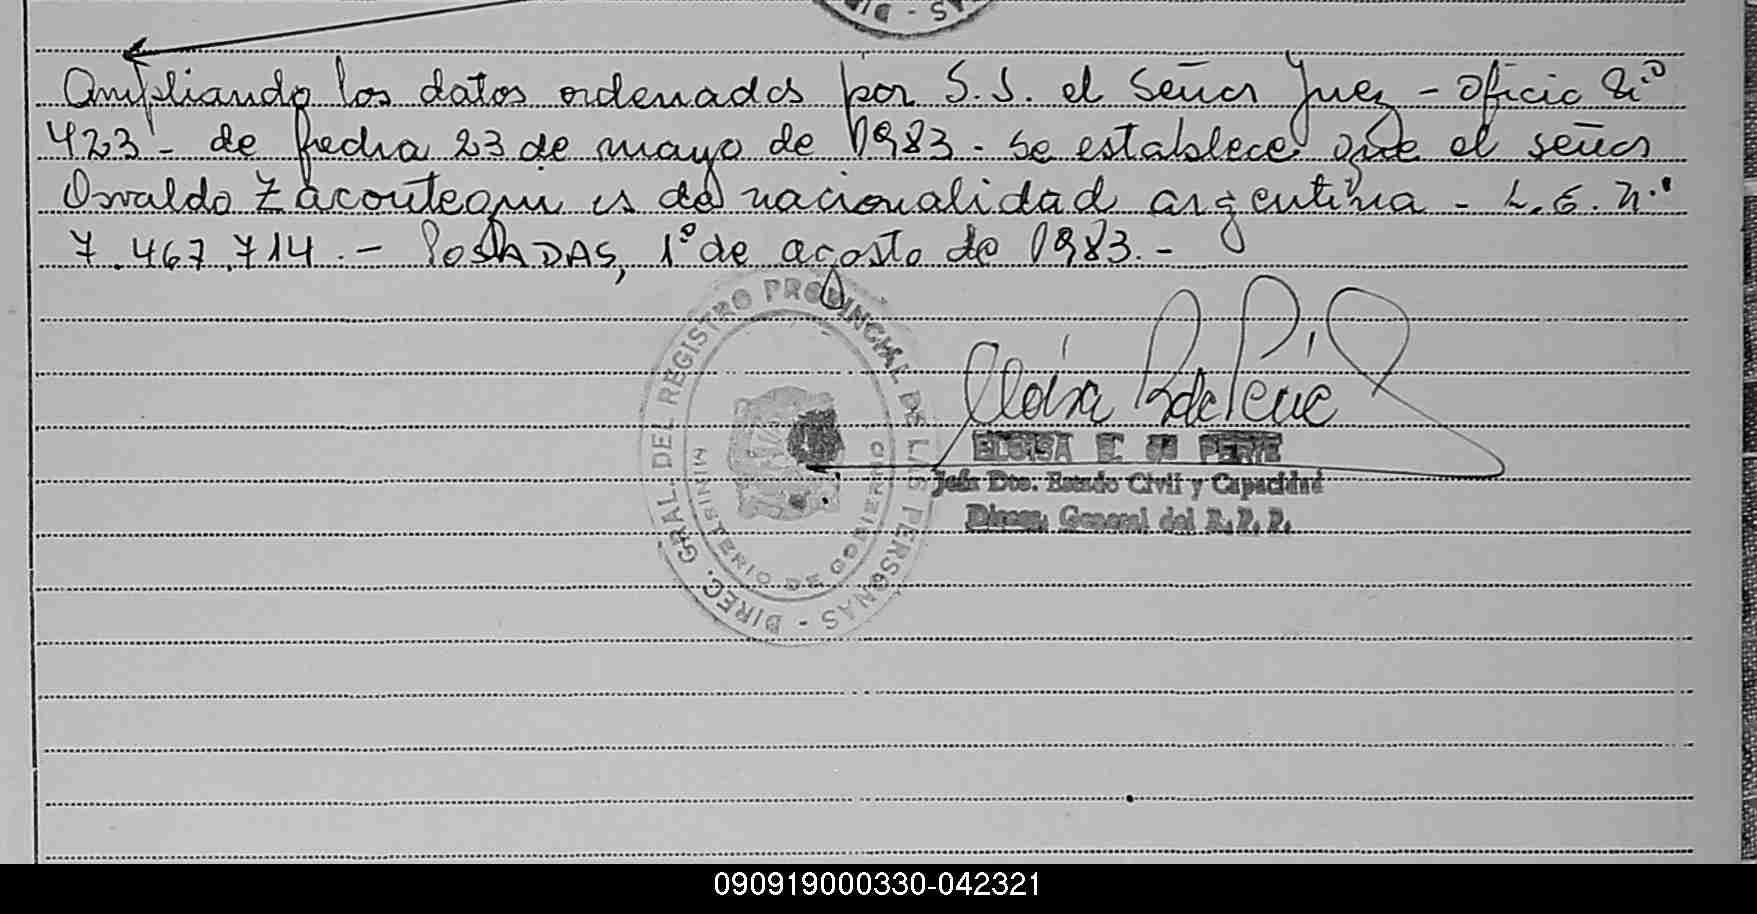 AS - DI
Ampliando los datos ordenados por S.S. el señor Juez - oficio N.º
423 - de fecha 23 de mayo de 1983 - se establece que el señor
Osvaldo Zacouteguy es de nacionalidad argentina - L.E. N.º
7.467.714. - POSADAS, 1º de agosto de 1983. -
DIREC. GRAL. DEL REGISTRO PROVINCIAL DE LAS PERSONAS -
MINISTERIO DE GOBIERNO
ELOISA PERIE
Jefa Dto. Estado Civil y Capacidad
Direcc. General del R. P. P.
090919000330-042321